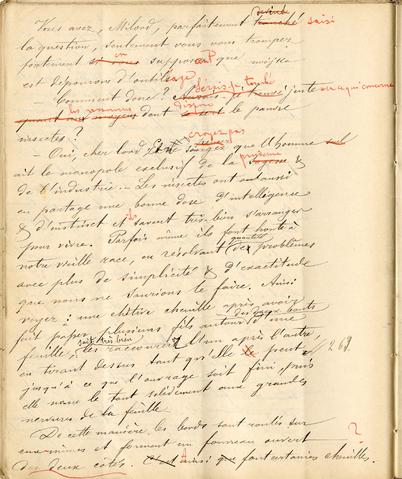 Vous avez, Milord, parfaitement touché saisi
la question, seulement vous vous trompez
fortement en supposant que
est dépourvu d'outillage
— Comment donc? juste en ce qui concerne
les moyens dont dispose le pauvre
insecte?
— Oui, cher lord, croyez pas que l'homme seul
ait le monopole exclusif de la sagesse &
de l'industrie. — Les insectes ont eu aussi
en partage une bonne dose d'intelligence
& d'instinct et savent très bien s'arranger
pour vivre. Parfois même ils font honte à
notre vieille race, en résolvant quantité des problèmes
avec plus de simplicité & d'exactitude
que nous ne saurions le faire. Ainsi
voyez: une chétive chenille après avoir
fait passer plusieurs fils autour des deux bouts d'une
feuille, sait très bien les raccourcir l'un après l'autre,
en tirant dessus tant qu'elle peut № 269.
jusqu'à ce que l'ouvrage soit fini, puis
elle le tout solidement aux grandes
nervures de la feuille.
De cette manière, les bords sont roulés sur
eux-mêmes et forment un fourreau ouvert ?
des deux côtés. C'est ainsi que font certaines chenilles.